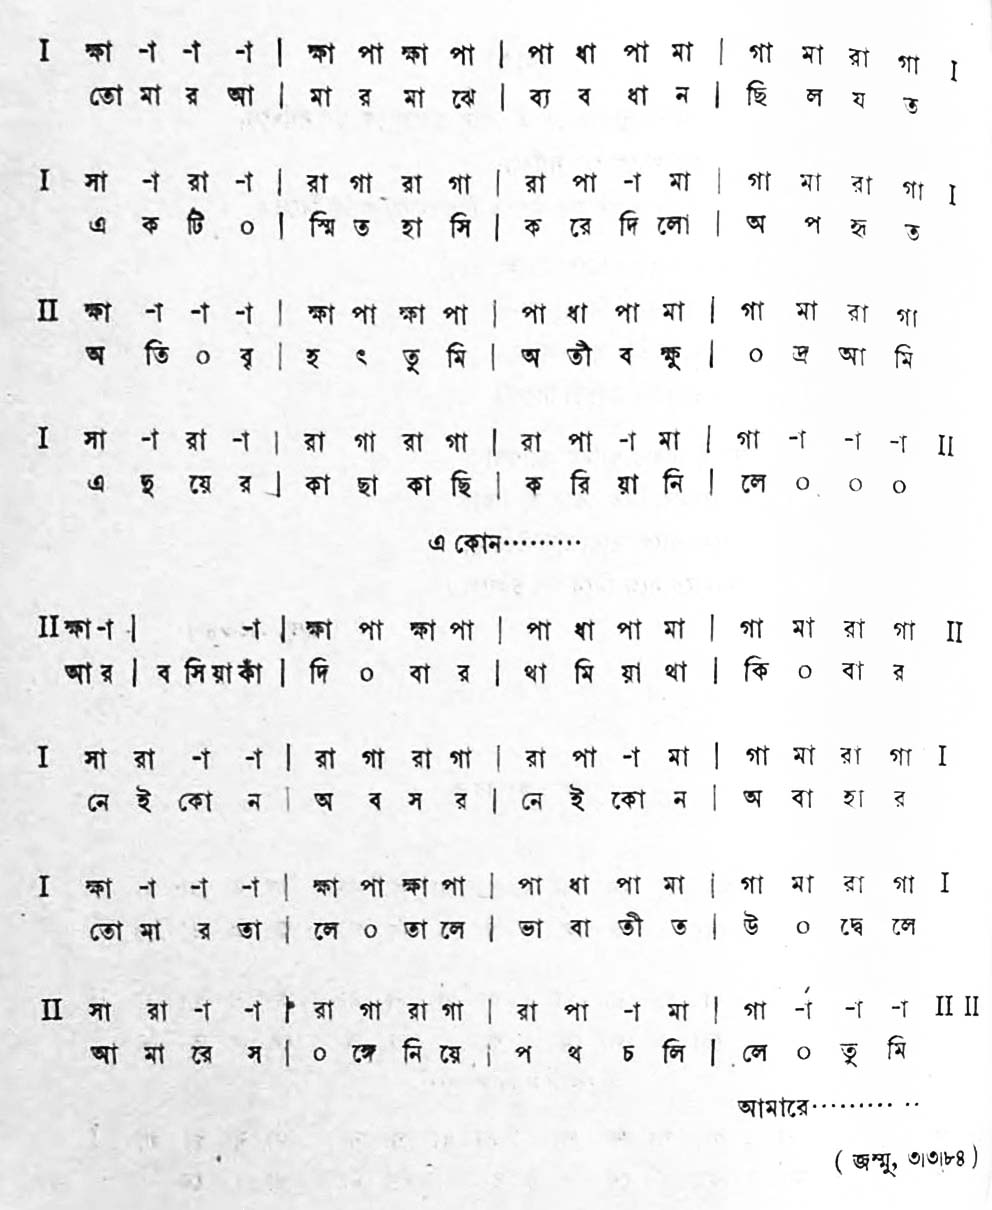 I ক্ষা -া -া -া | ক্ষা পা ক্ষা পা | পা ধা পা মা | গা মা রা গা I
তো মা র আ | মা র মা ঝে | ব্য ব ধা ন | ছি ল য ত
I সা -া রা -া | রা গা রা গা | রা পা -া মা | গা মা রা গা I
এ ক টি ০ | স্মি ত হা সি | ক রে দি লো | অ প হৃ ত
II ক্ষা -া -া -া | ক্ষা পা ক্ষা পা | পা ধা পা মা | গা মা রা গা
অ তি ০ বৃ | হ ৎ তু মি | অ তী ব ক্ষু | ০ দ্র আ মি
I সা -া রা -া | রা গা রা গা | রা পা -া মা | গা -া -া -া II
এ দু য়ে র | কা ছা কা ছি | ক রি য়া নি | লে ০ ০ ০
এ কোন·········
II ক্ষা -া | -া | ক্ষা পা ক্ষা পা | পা ধা পা মা | গা মা রা গা II
আ র | ব সি য়া কাঁ | দি ০ বা র | থা মি য়া থা | কি ০ বা র
I সা রা -া -া | রা গা রা গা | রা পা -া মা | গা মা রা গা I
নে ই কো ন | অ ব স র | নে ই কো ন | অ বা হা র
I ক্ষা -া -া -া | ক্ষা পা ক্ষা পা | পা ধা পা মা | গা মা রা গা I
তো মা র তা | লে ০ তা লে | ভা বা তী ত | উ ০ দ্বে লে
II সা রা -া -া | রা গা রা গা | রা পা -া মা | গা -া -া -া II II
আ মা রে স | ০ ঙ্গে নি য়ে | প থ চ লি | লে ০ তু মি
আমারে········· ··
( জম্মু, ৩।৩।৮৪ )